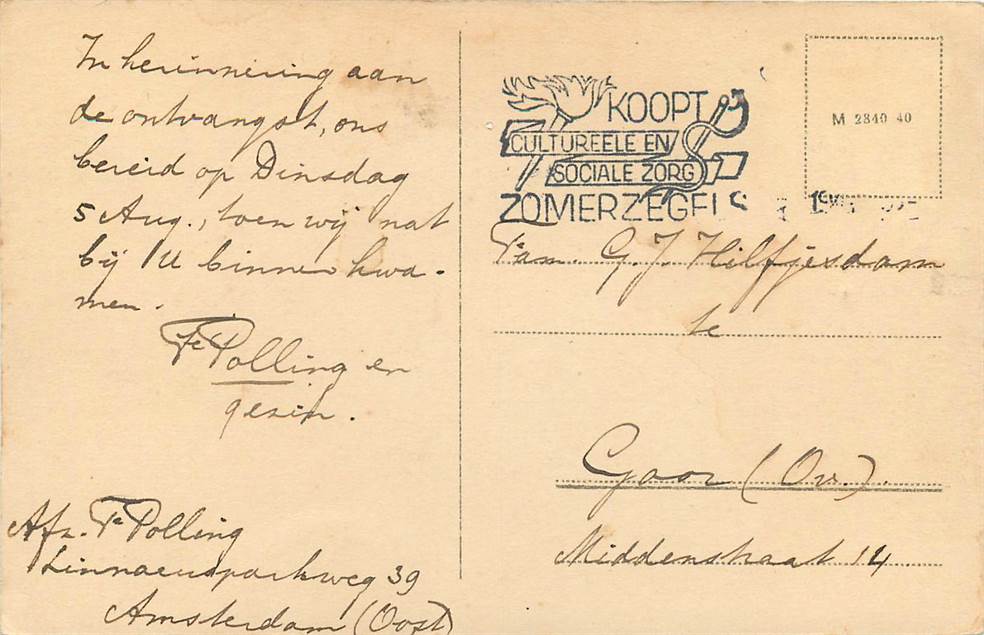 In herinnering aan
de ontvangst, ons
bereid op Dinsdag
5 Aug., toen wij nat
bij U binnen kwa-
men.
Fe Polling en
gezin.
Afz. Fe Polling
Linnaeusparkweg 39
Amsterdam (Oost)
KOOPT
CULTUREELE EN
SOCIALE ZORG
ZOMERZEGELS
M 2840 40
Fam. G. J. Hilfjesdam
te
Goor (Ov.).
Middenstraat 14